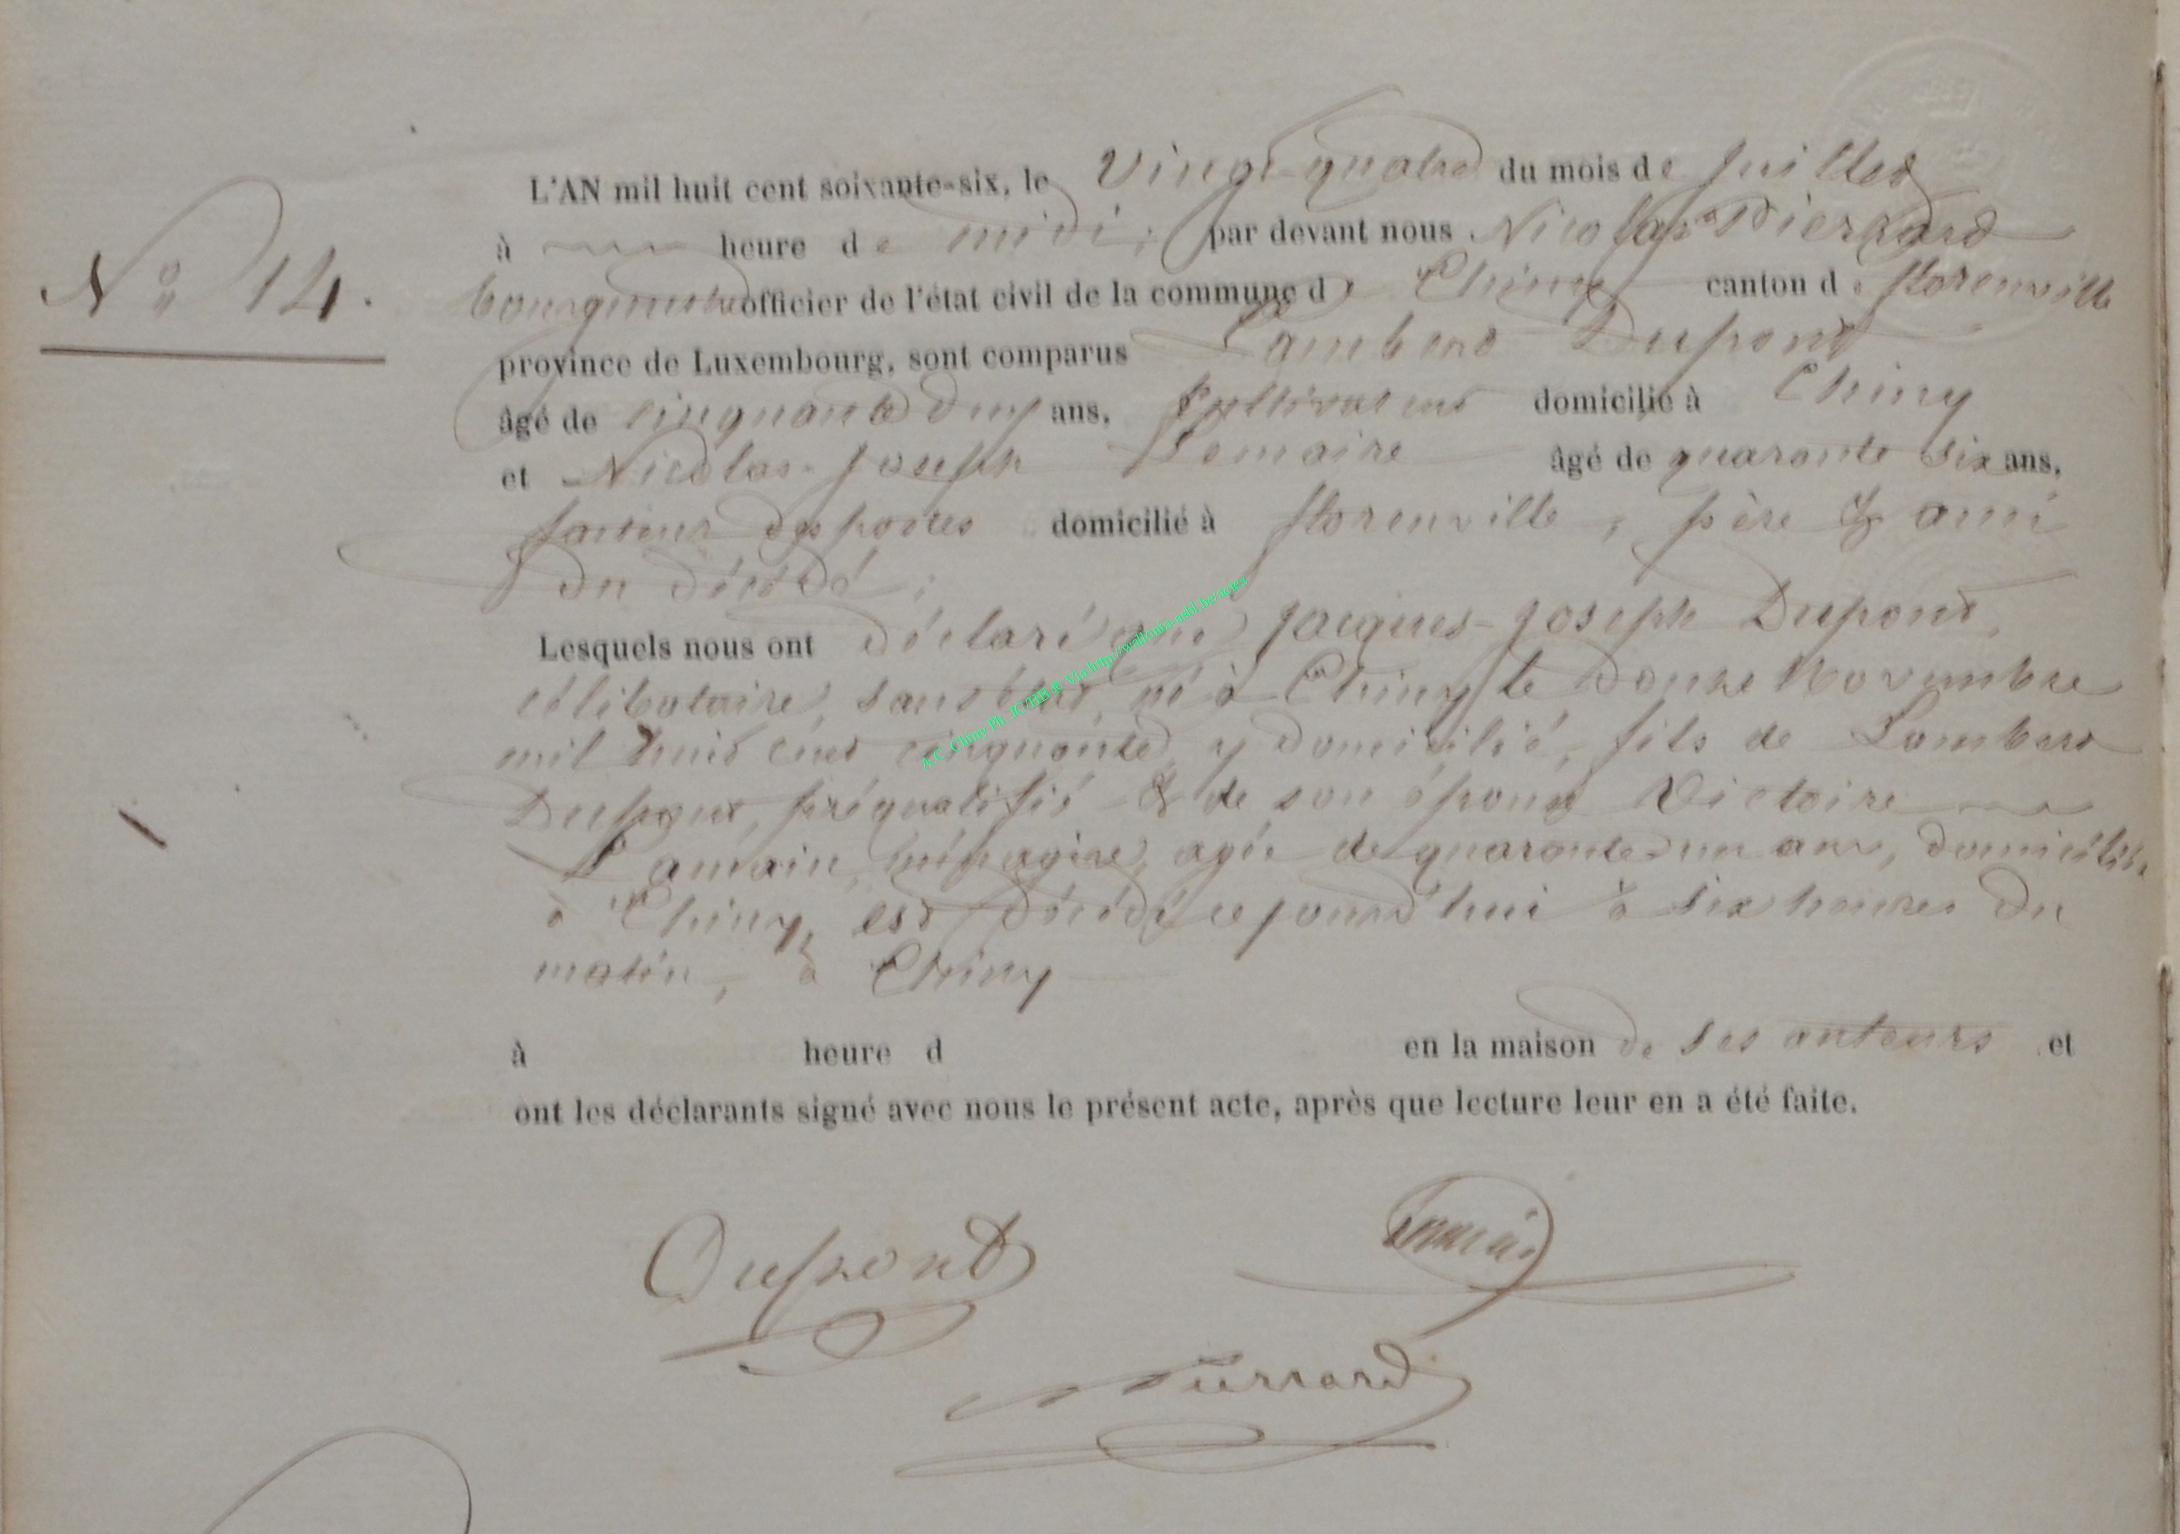 L'AN mil huit cent soixante-six, le Vingt-quatre du mois de Juillet
à heure de midi, par devant nous Nicolas Pierrard
N° 14.
bourgmestre officier de l'état civil de la commune de Chiny canton de florenville
province de Luxembourg, sont comparus Lambert Dupont
âgé de cinquante deux ans, Cultivateur domicilié à Chiny
et Nicolas-Joseph Lemaire âgé de quarante six ans,
facteur des postes domicilié à florenville, père & ami
du décédé;
Lesquels nous ont déclaré que Jacques-Joseph Dupont,
célibataire, sans état, né à Chiny le douze Novembre
mil huit cent cinquante, y domicilié, fils de Lambert
Dupont, préqualifié & de son épouse Victoire
ménagère, agée de quarante-un ans, domiciliée
à Chiny, est décédé ce jourd'hui à six heures du
matin, à Chiny
à heure d en la maison de ses auteurs et
ont les déclarants signé avec nous le présent acte, après que lecture leur en a été faite.
Dupont Lemaire
N Pierrard